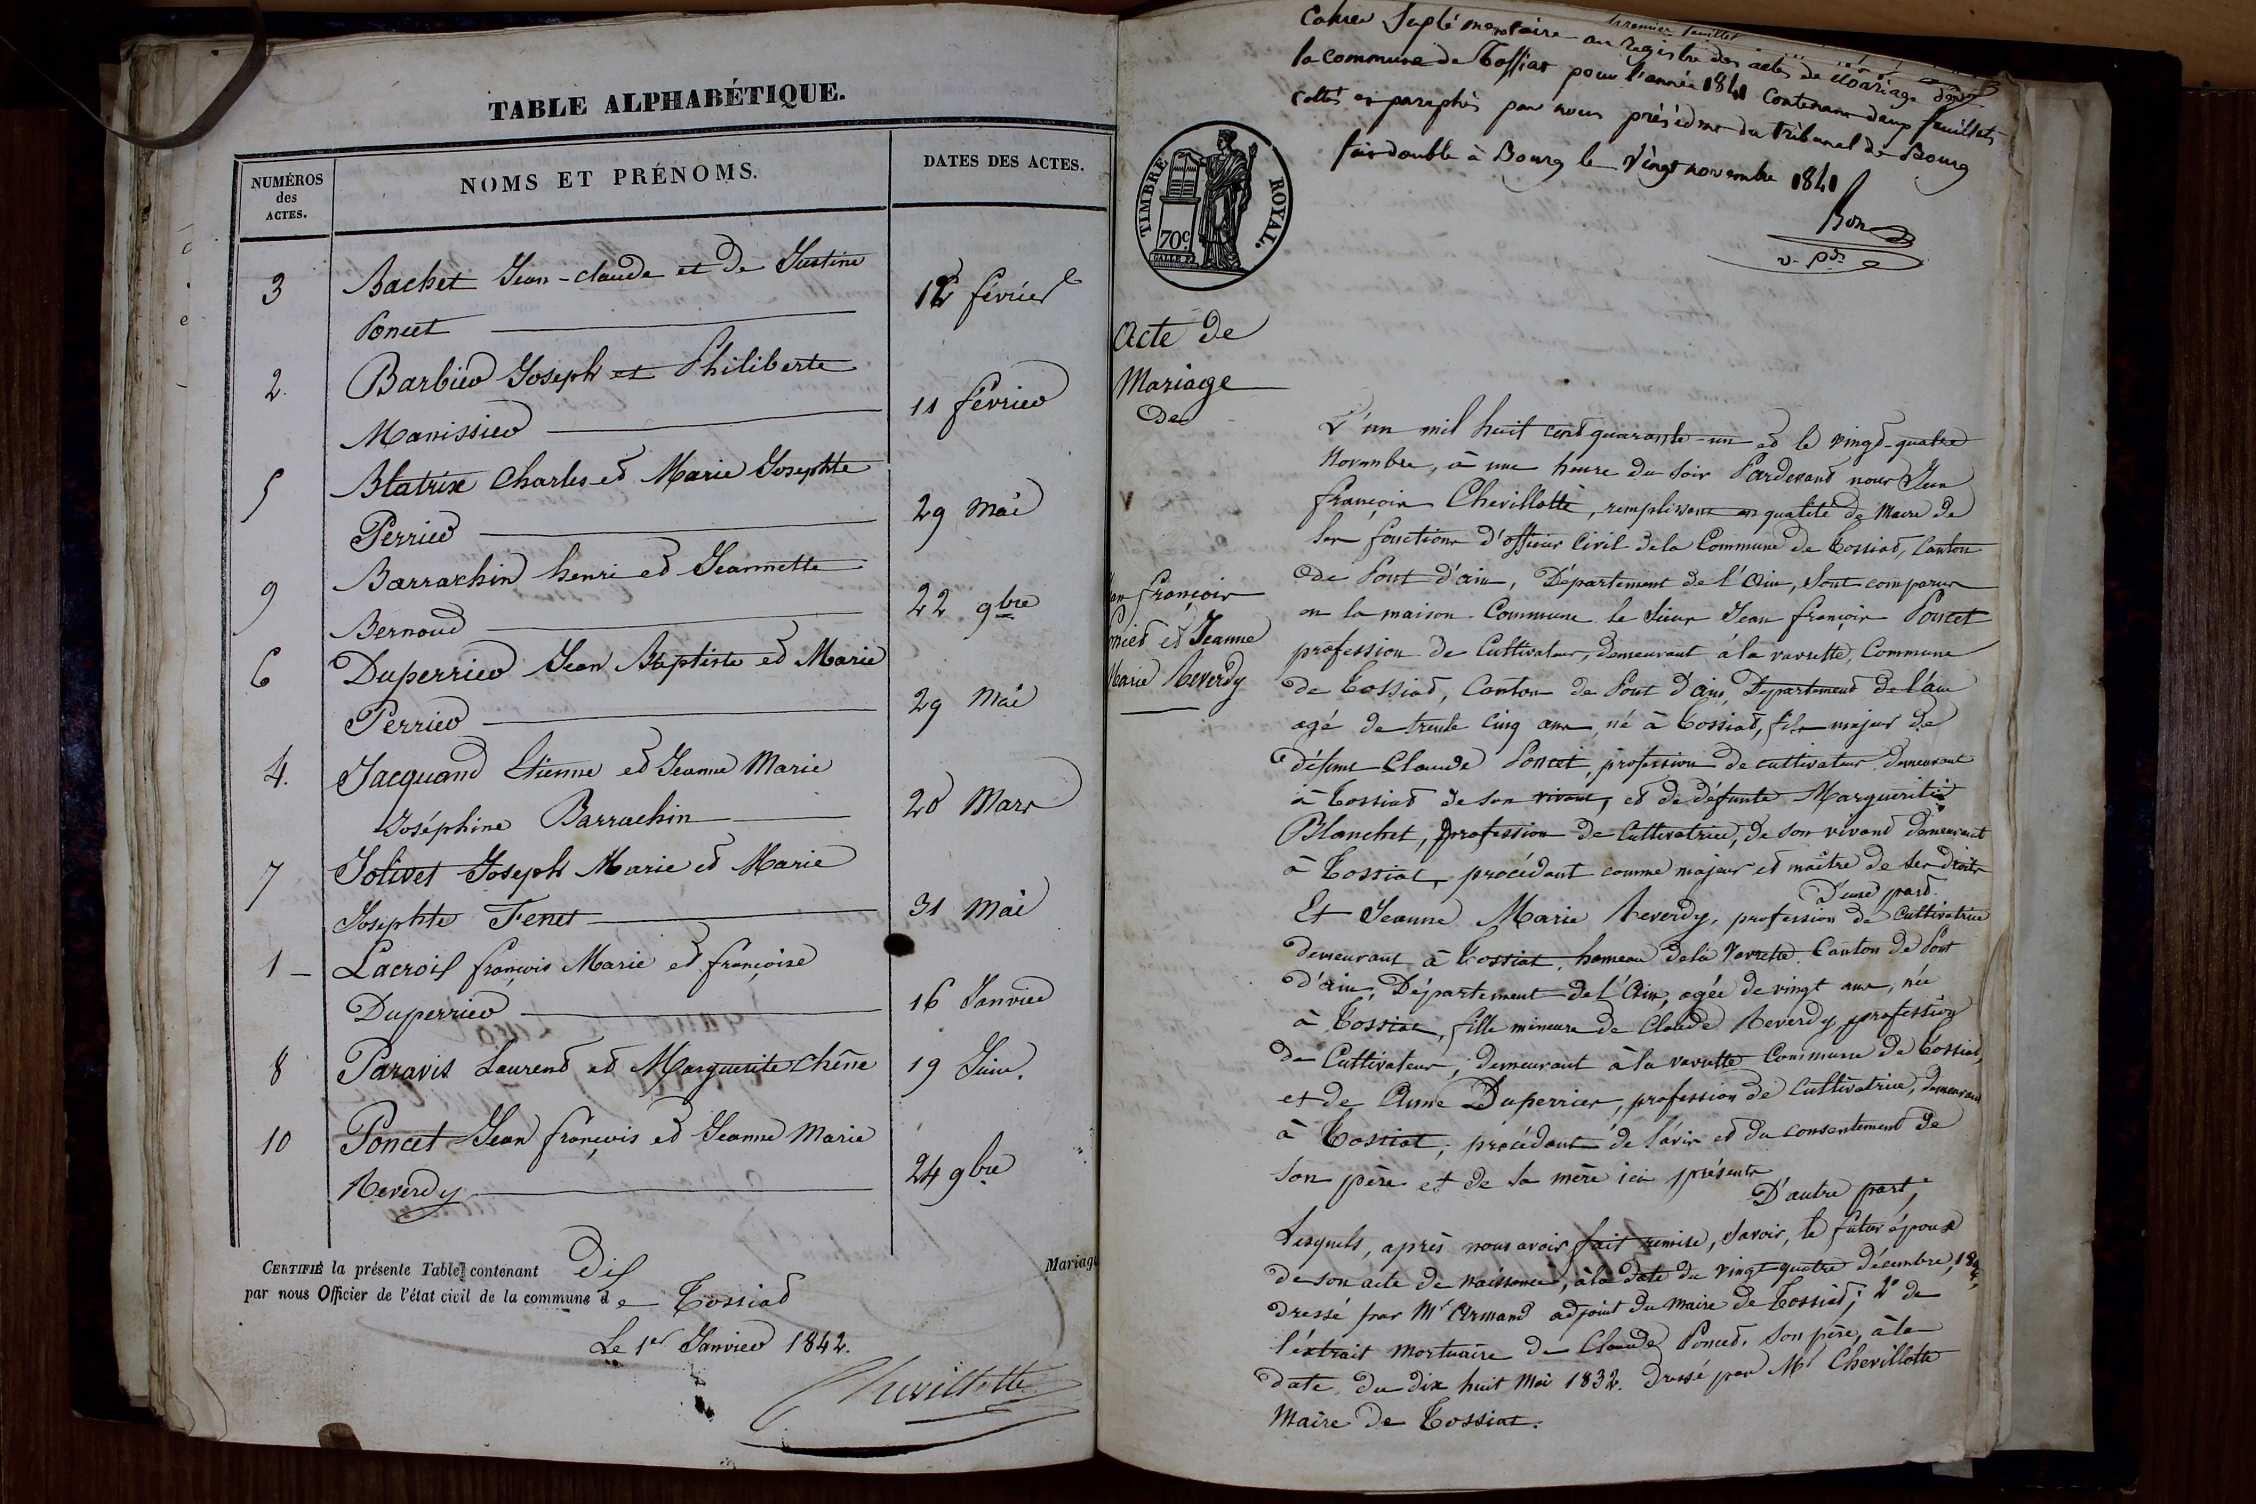 TABLE ALPHABÉTIQUE.
NUMÉROS
des
ACTES.
NOMS ET PRÉNOMS.
DATES DES ACTES.
3 Bachet Jean-claude et de Justine
Poncet
12 février
2. Barbier Joseph et Philiberte
Manissier
11 février
5 Blatrix Charles et Marie Josephte
Perrier
29 mai
9 Barrachin henri et Jeannette
Bernoud
22 9bre
6 Duperrier Jean Baptiste et Marie
Perrier
29 Mai
4. Jacquand Etienne et Jeanne Marie
Joséphine Barrachin
20 Mars
7 Jolivet Joseph Marie et Marie
Josephte Fenet
31 Mai
1 Lacroix françois Marie et françoise
Duperrier
16 Janvier
8 Paravis Laurent et Marguerite Chêne
19 Juin.
10 Poncet Jean françois et Jeanne Marie
Reverdy
24 9bre
CERTIFIÉ la présente Table contenant Dix
par nous Officier de l'état civil de la commune de Tossiat
Le 1er Janvier 1842.
Chevillotte
Mariage
premier feuillet
Cahier Suplémentaire au registre des actes de Mariage de
la commune de Tossiat pour l'année 1841 Contenant deux feuillets
cottés et paraphés par nous président du tribunal de Bourg
fait double à Bourg le vingt novembre 1841
Bon
v. pdt
TIMBRE ROYAL.
70c.
Acte de
Mariage
De
françois
Poncet et Jeanne
Marie Reverdy
L'an mil huit cent quarante-un et le vingt-quatre
Novembre, à une heure du soir Pardevant nous Jean
françois Chevillotte, remplissant en qualité de Maire de
les fonctions d'officier Civil de la Commune de Tossiat, Canton
de Pont d'ain, Département de l'Ain, Sont comparus
en la maison Commune le Sieur Jean françois Poncet
profession de Cultivateur, demeurant à la vavrette, Commune
de Tossiat, Canton de Pont d'ain, Département de l'ain
agé de trente cinq ans, né à Tossiat, fils majeur de
défunt Claude Poncet, profession de cultivateur demeurant
à Tossiat de son vivant, et de défunte Marguerite
Blanchet, profession de Cultivatrice, de son vivant demeurant
à Tossiat, procédant comme majeur et maître de ses droits
D'une part.
Et Jeanne Marie Reverdy, profession de Cultivatrice
demeurant à Tossiat, hameau de la Vavrette Canton de Pont
d'ain, Département de l'Ain, agée de vingt ans, née
à Tossiat, fille mineure de Claude Reverdy profession
de Cultivateur, demeurant à la vavrette Commune de Tossiat,
et de Anne Duperrier, profession de Cultivatrice, demeurant
à Tossiat, procédant de l'avis et du consentement de
son père et de sa mère ici présents
D'autre part,
Lesquels, après nous avoir fait remise, savoir, le futur époux
de son acte de naissance, à la date du vingt-quatre décembre,
dressé par Mr Armand adjoint du maire de Tossiat; 2° de
l'extrait mortuaire de Claude Poncet, son père, à la
date du dix huit Mai 1832. Dressé par Mr Chevillotte
Maire de Tossiat.